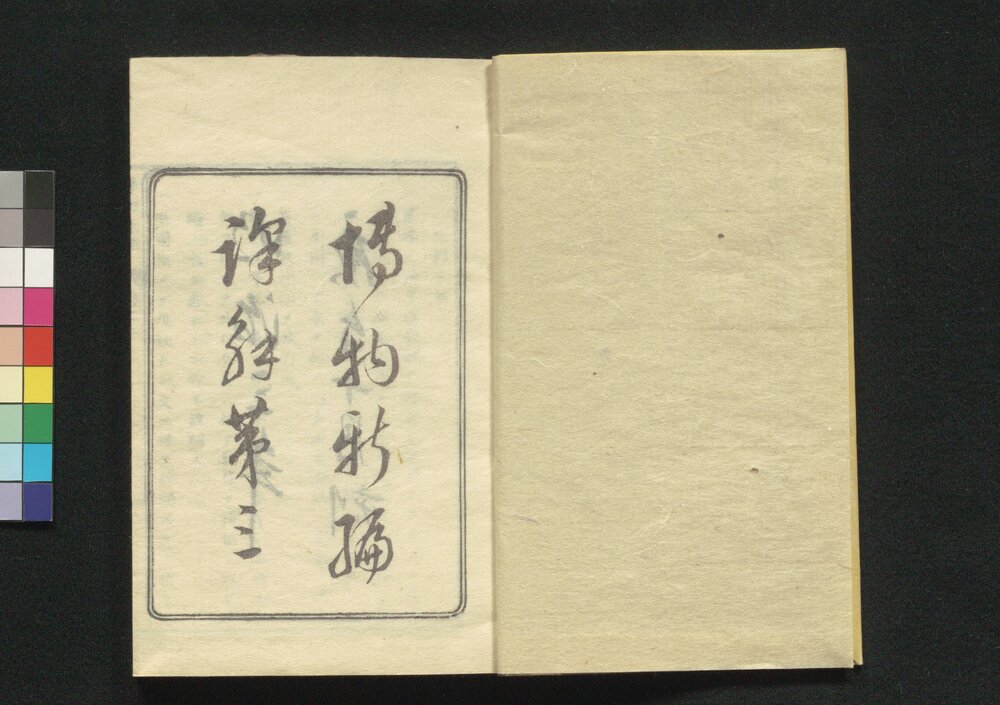 博物新編
譯解第三